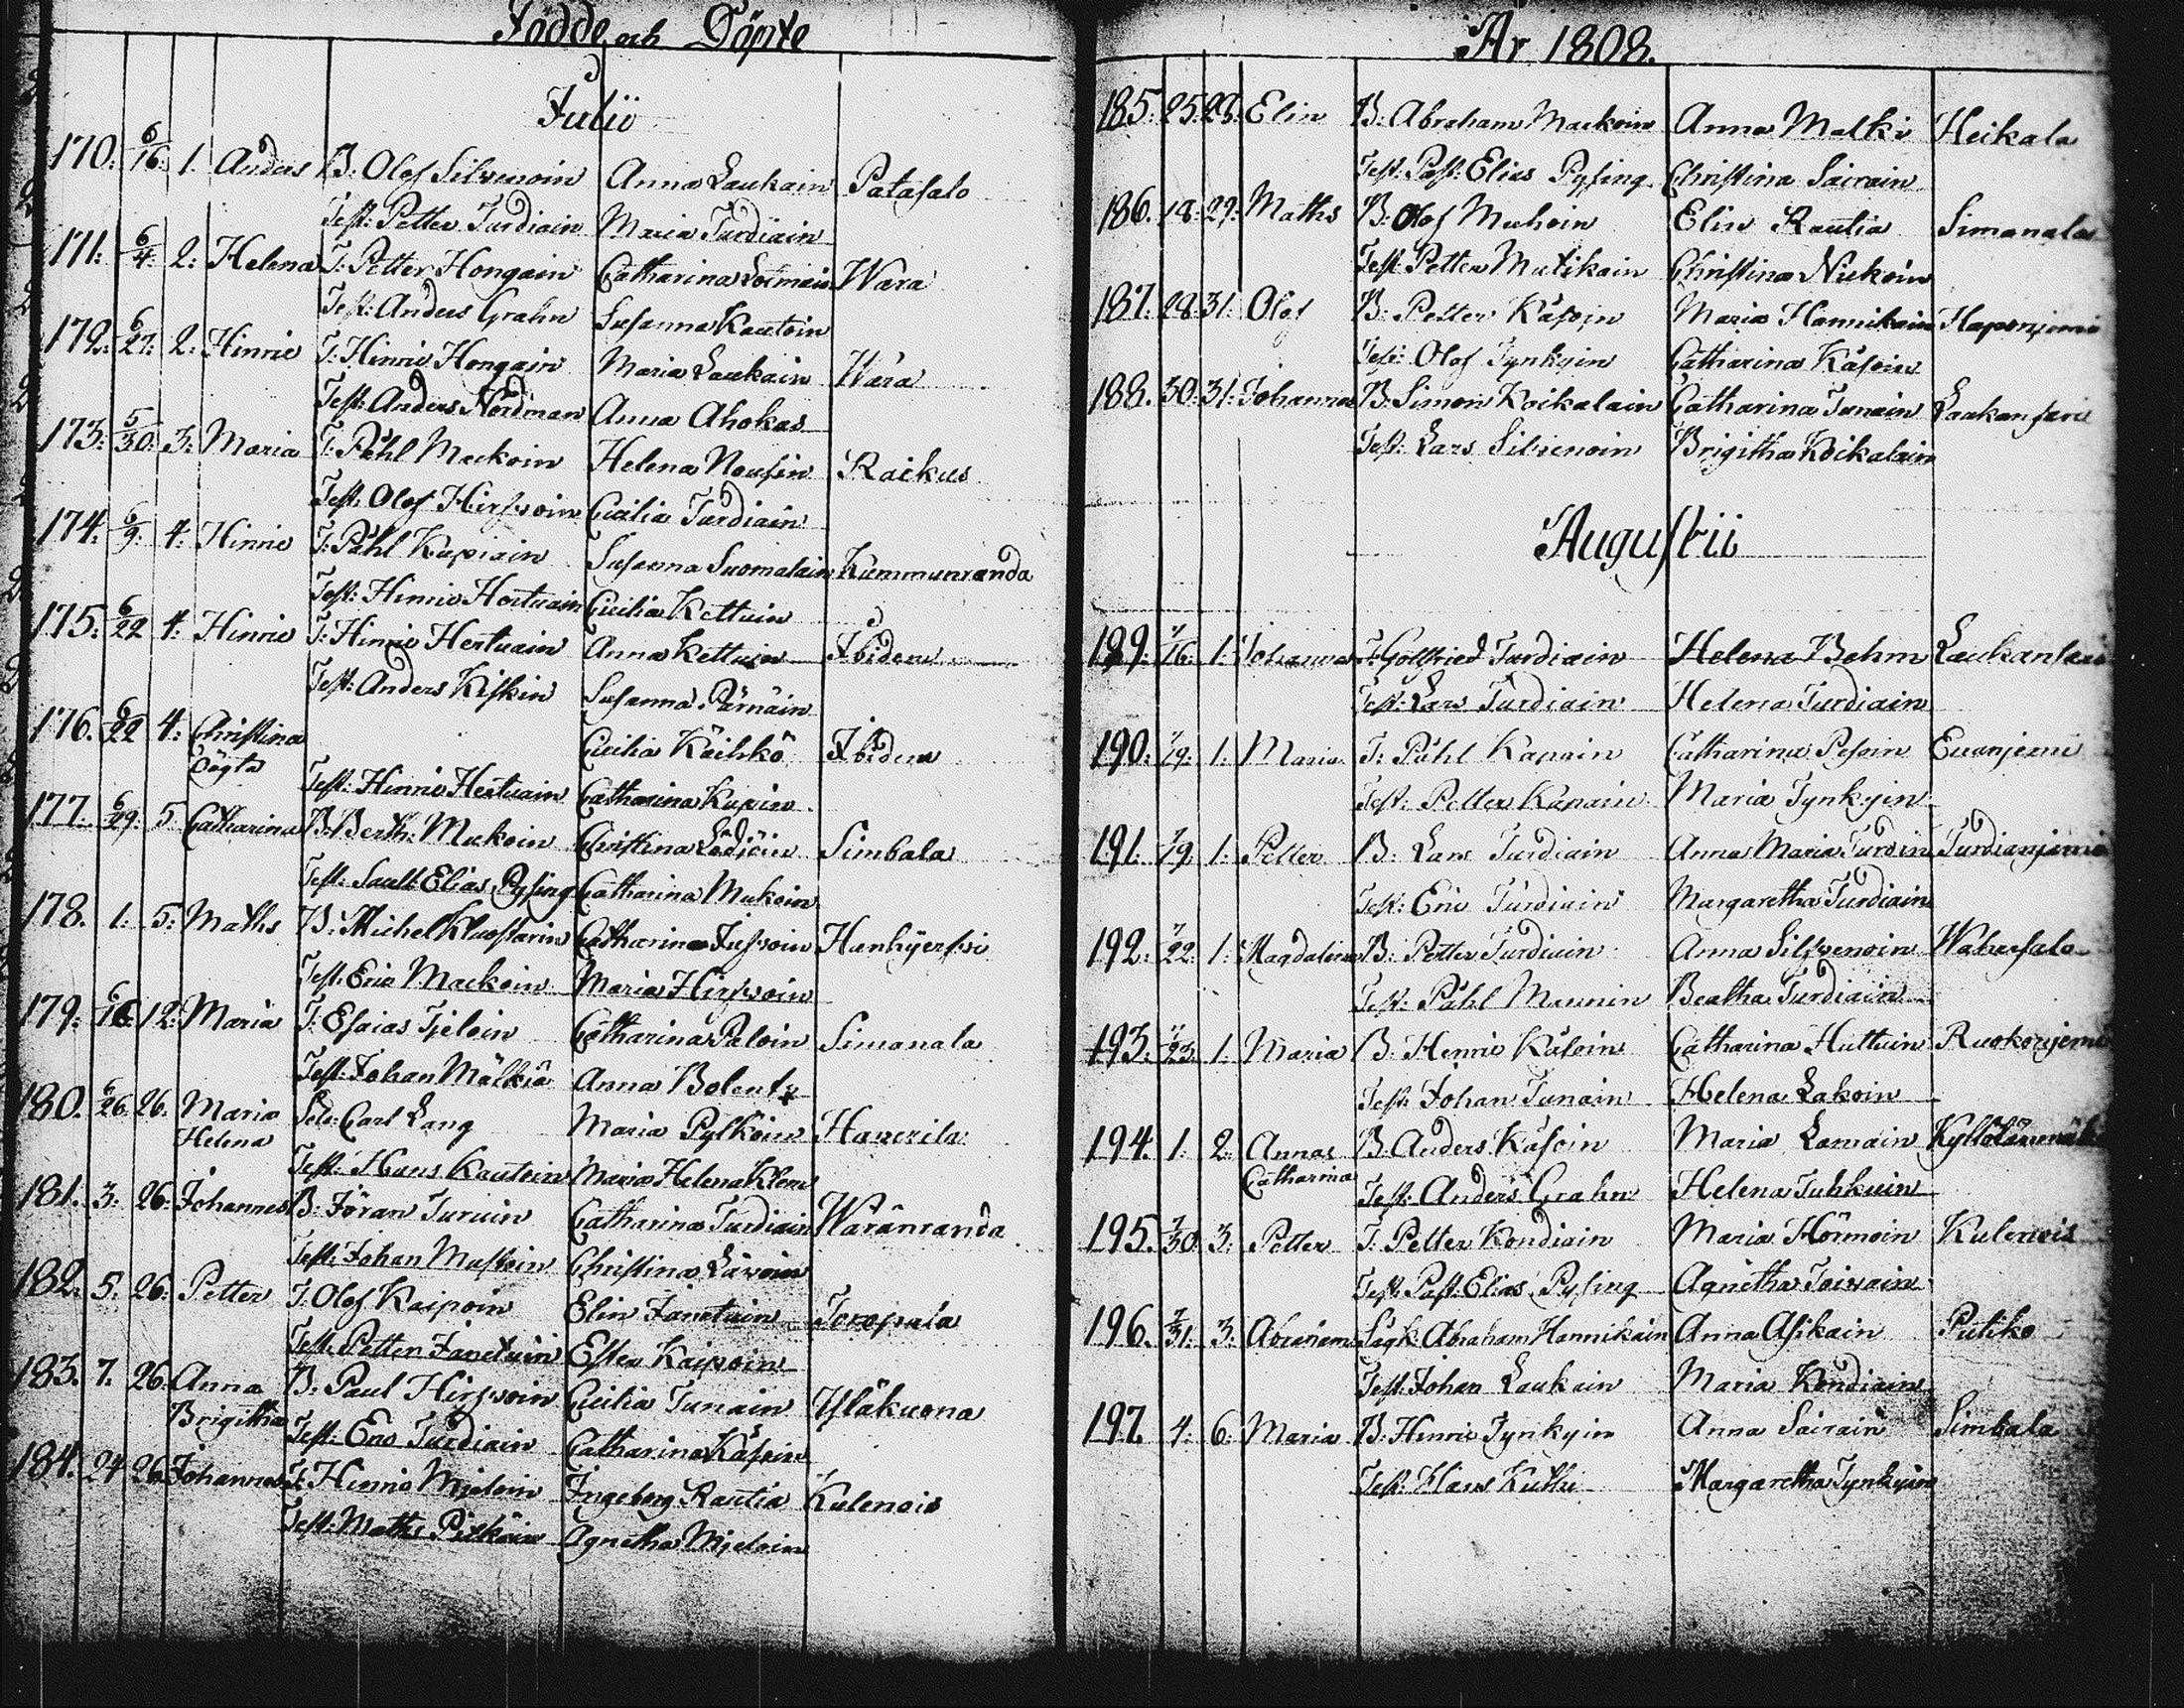 Födde och Döpte
Julii
170. 6/16. 1. Anders B. Olof Silvenoin Anna Laukain Patasalo
Test: Petter Turdiain Maria Turdiain
171. 6/4. 2. Helena T. Petter Hongain Catharina Wara
Test: Anders Grahn Susanna Kautoin
172. 6/27. 2. Hinric T. Hinric Hongain Maria Laukain Wara
Test: Anders Nordman Anna Ahokas
173. 5/30. 3. Maria T. Påhl Mackoin Helena Nousin Raikus
Test: Olof Hirfwoin Cicilia Turdiain
174. 6/9. 4. Hinric T. Påhl Kupiain Susanna Suomalain Kummunranda
Test: Hinric Hertuain Cicilia Kettuin
175. 6/22 4. Hinric T. Hinric Hertuain Anna Kettuin Ibidem
Test: Anders Kiskin Susanna Pärnäin
176. 6/22 4. Christina Cicilia Köihkö Ibidem
oägta
Test: Hinric Hertuain Catharina Kupin
177. 6/29. 5. Catharina B. Berth. Mukoin Christina Lödjöin Simbala
Test: Elias Pysing Catharina Mukoin
178. 1. 5. Maths B. Michel Kluostarin Catharina Jusvoin Hanhijerfvi
Test: Eric Mackoin Maria Hirfwoin
179. 6/16. 12. Maria T. Esaias Tieloin Catharina Paloin Simanala
Test: Johan Mälkiä Anna Bolentz
180. 6/26. 26. Maria Carl Lang Maria Pylköin Haverila
Helena
Test: Hans Kautoin Maria Helena Klem
181. 3. 26. Johannes B. Jöran Turuin Catharina Turdiain Waränranda
Test: Johan Mustoin Christina Läwoin
182. 5. 26. Petter T. Olof Kaipoin Elin Janatuin Toropala
Test: Petter Janatuin Ester Kaipoin
183. 7. 26. Anna B. Paul Hirfwoin Cicilia Tunain Yläkuona
Brigitha
Test: Eric Turdiain Catharina Käsoin
184. 24 26. Johannes T. Hinric Mieloin Ingeborg Rautia Kulenois
Test: Maths Pitköin Agnetha Mieloin
År 1808.
185. 25. 28. Elin B. Abraham Mackoin Anna Malki Heikala
Test: Past: Elias Pysing Christina Sairain
186. 18. 29. Maths B. Olof Muhoin Elin Rautia Simanala
Test: Petter Mutikain Christina Niukoin
187. 28. 31. Olof B. Petter Käsoin Maria Hannikain Haponjemi
Test: Olof Tynkyin Catharina Käsoin
188. 30. 31. Johannes B. Simon Koikalain Catharina Tunain Laukansari
Test: Lars Silvenoin Brigitha Koikalain
Augustii
189. 7/16. 1. Johannes T. Gottfried Turdiain Helena Behm Laukansari
Test: Lars Turdiain Helena Turdiain
190. 7/19. 1. Maria T. Påhl Kapain Catharina Pesoin Euanjemi
Test: Petter Kapain Maria Tynkyin
191. 7/19 1. Petter B. Lars Turdiain Anna Maria Turdin Turdianjemi
Test: Eric Turdiain Margaretha Turdiain
192. 7/22. 1. Magdalena B. Petter Turdiain Anna Silfvenoin Wahersalo
Test: Påhl Maunin Beatha Turdiain
193. 7/23. 1. Maria B. Henric Käsoin Catharina Huttuin Ruokonjemi
Test: Johan Tunain Helena Lakoin
194. 1. 2. Anna B. Anders Käsoin Maria Lamain
Catharina
Test: Anders Grahn Helena Tuhkuin
195. 7/30. 3. Petter T. Petter Kondiain Maria Hörmoin Kulenois
Test: Past: Elias Pysing Agnetha Toivain
196. 7/31. 3. Abraham Abraham Hannikain Anna Asikain Putiko
Test: Johan Laukain Maria Kondiain
197. 4. 6. Maria B. Henric Tynkyin Anna Sairain Simbala
Test: Hans Kuthi Margaretha Tynkyin